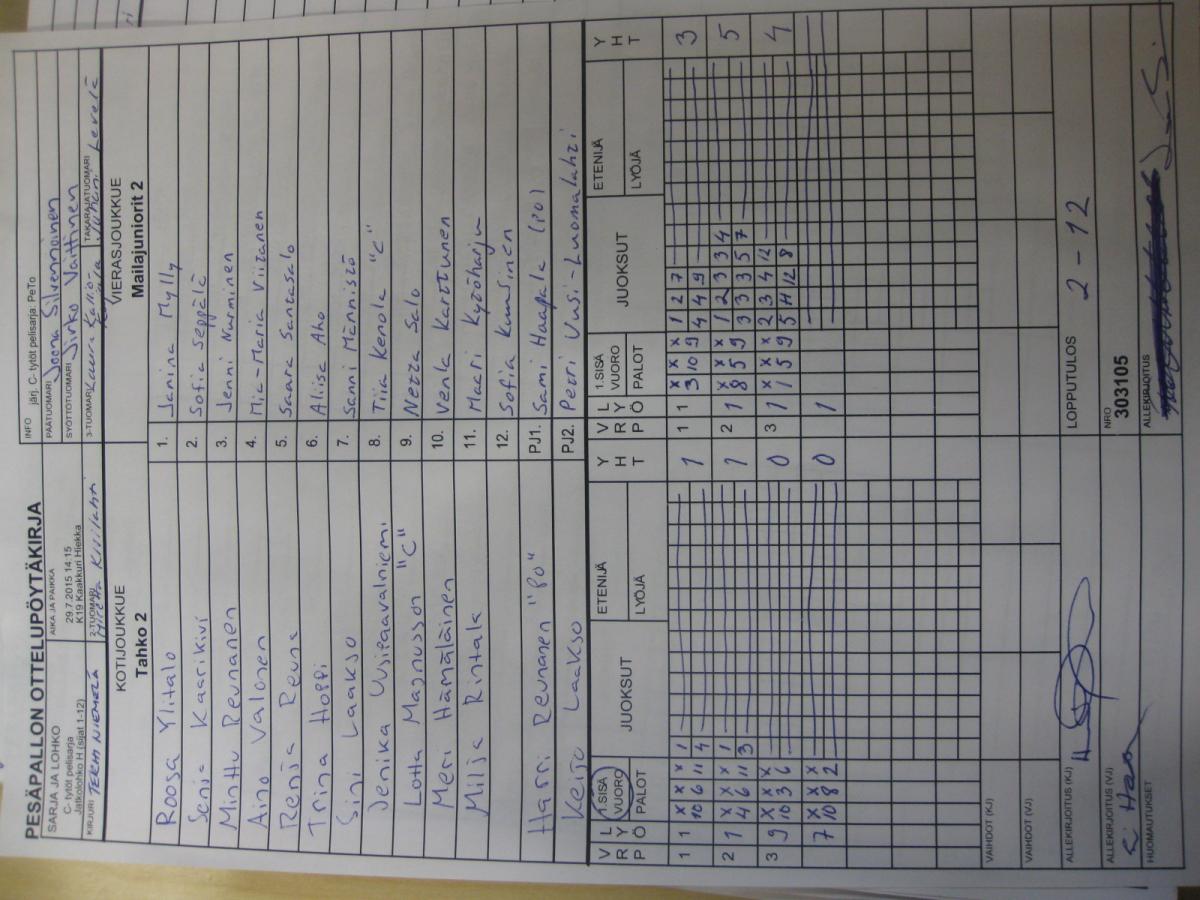 PESÄPALLON OTTELUPÖYTÄKIRJA
INFO järj. C- tytöt pelisarja: PeTo
SARJA JA LOHKO
C- tytöt pelisarja
Jatkolohko H (sijat 1-12)
AIKA JA PAIKKA
29.7.2015 14:15
K19 Kaakkuri Hiekka
PÄÄTUOMARI Joona Silvennoinen
SYÖTTÖTUOMARI Sirko Vaittinen
KIRJURI TERHI NIEMELÄ
2-TUOMARI Kivilahti
3-TUOMARI Kaura
TAKARAJATUOMARI Juhani Levelä
KOTIJOUKKUE
Tahko 2
VIERASJOUKKUE
Mailajuniorit 2
Roosa Ylitalo 1. Janina Mylly
Senja Kaarikivi 2. Sofia Seppälä
Minttu Reunanen 3. Jenni Nurminen
Aino Valonen 4. Mia-Maria Viitanen
Renja Reuna 5. Saara Santasalo
Triina Hoppi 6. Aliisa Aho
Sini Laakso 7. Sanni Männistö
Jenika Uusipaavalniemi 8. Tiia Kenola "C"
Lotta Magnusson "C" 9. Neza Salo
Meri Hämäläinen 10. Venla Karttunen
Milja Rintala 11. Maari Kytöharju
12. Sofia Kuusinen
Harri Reunanen "PO" PJ1. Sami Haapala (PO)
Keijo Laakso PJ2. Petri Uusi-Luomalahti
V R P L Y Ö 1.SISÄ VUORO PALOT JUOKSUT ETENIJÄ LYÖJÄ Y H T V R P L Y Ö 1.SISÄ VUORO PALOT JUOKSUT ETENIJÄ LYÖJÄ Y H T
1 1 x x x 1 1 1 1 x x x 1 2 7 3
10 6 11 4 3 10 9 4 4 9
2 1 x x x 1 1 2 1 x x x 1 2 3 3 4 5
4 6 11 3 8 5 9 3 3 3 5 7
3 9 x x x 0 3 1 x x x 2 3 4 12 4
10 3 6 1 5 9 5 11 12 8
7 x x x 0 1
10 8 2
VAIHDOT (KJ)
VAIHDOT (VJ)
ALLEKIRJOITUS (KJ)
LOPPUTULOS 2 - 12
ALLEKIRJOITUS (VJ)
NRO
303105
HUOMAUTUKSET
ALLEKIRJOITUS